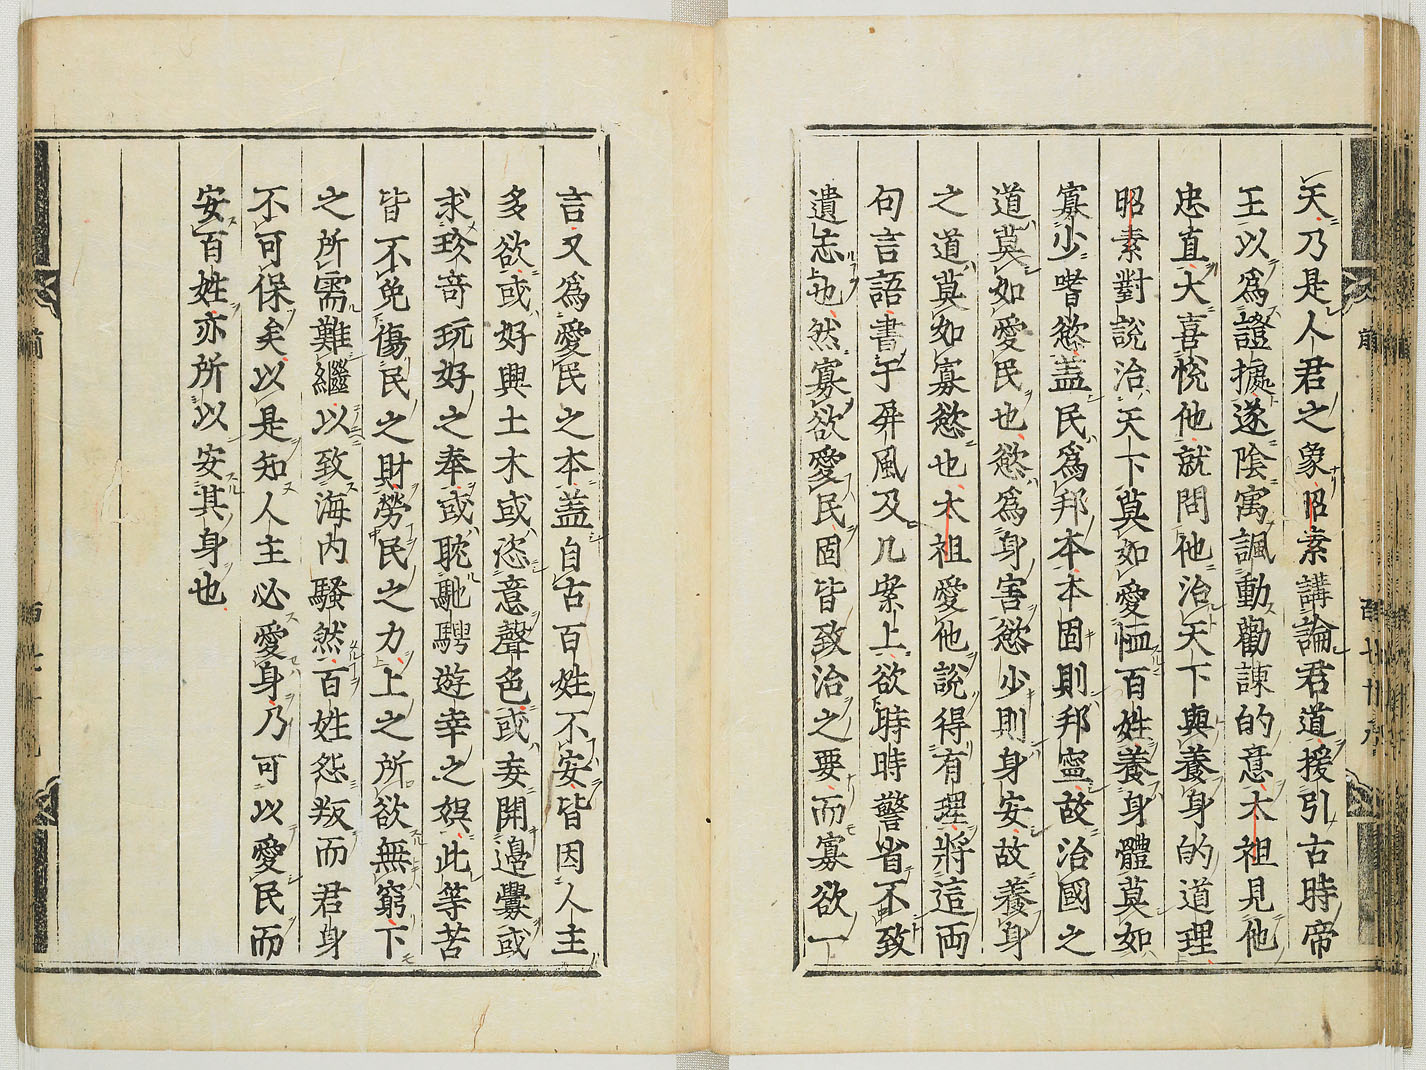 天乃是人君之象昭素講論君道援引古時帝
王以爲證據遂陰寓諷動勸諫的意太祖見他
忠直大喜悅他就問他治天下與養身的道理
昭素對說治天下莫如愛恤百姓養身體莫如
寡少嗜慾盖民爲邦本本固則邦寧故治國之
道莫如愛民也慾爲身害慾少則身安故養身
之道莫如寡慾也太祖愛他說得有理將這兩
句言語書于屏風及几案上欲時時警省不致
遺志也然寡欲愛民固皆致治之要而寡欲一
言又爲愛民之本盖自古百姓不安皆因人主
多欲或好興土木或恣意聲色或妄開邊釁或
求珍奇玩好之奉或耽馳騁遊幸之娯此等苦
皆不免傷民之財勞民之力上之所欲無窮下
之所需難繼以致海内騷然百姓怨叛而君身
不可保矣以是知人主必愛身乃可以愛民而
安百姓亦所以安其身也